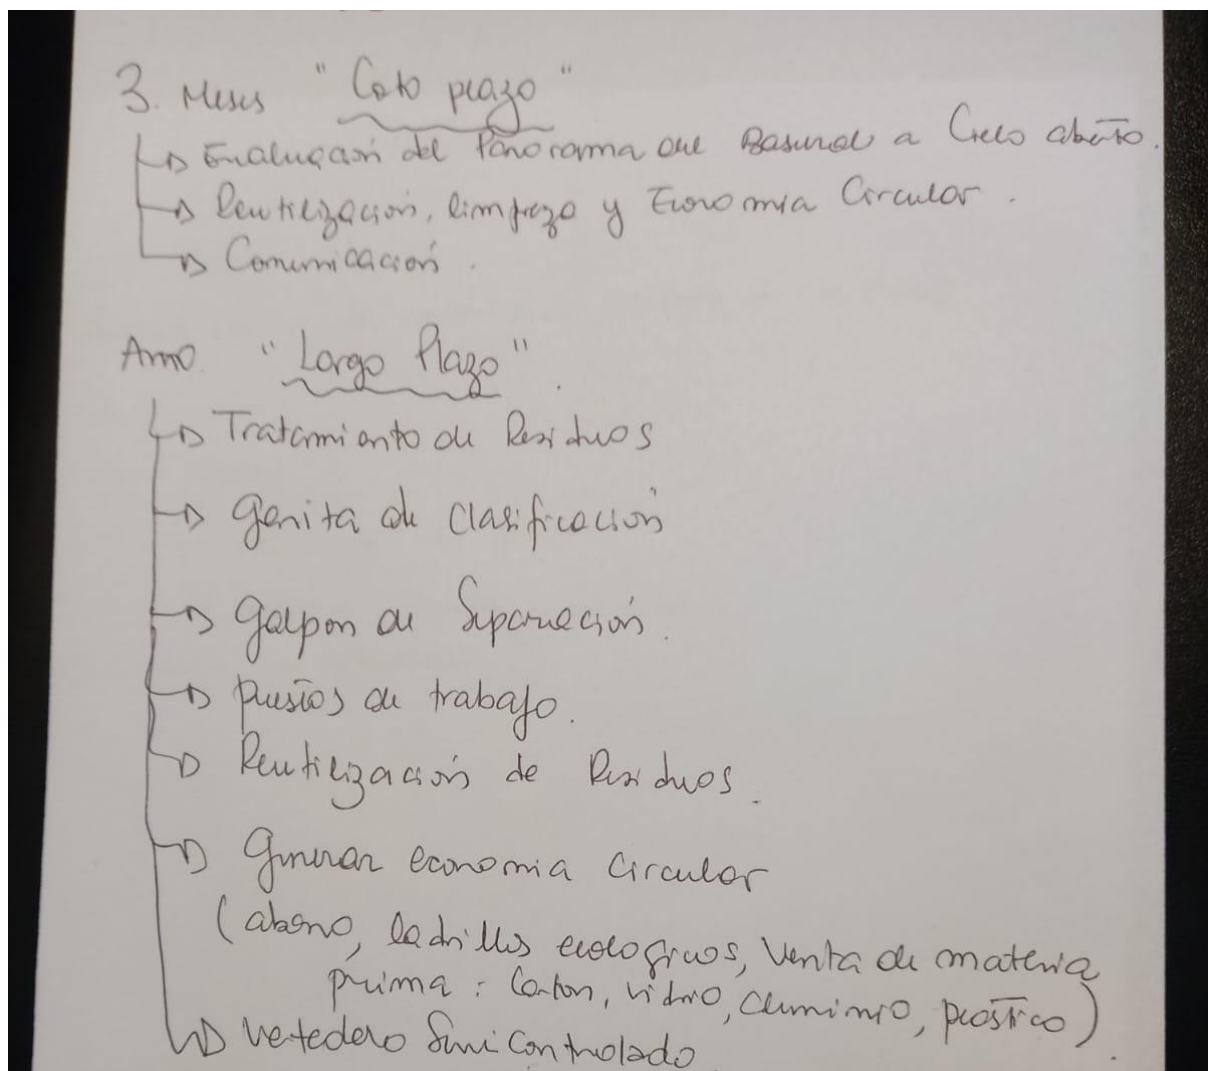 3. Meses "Corto plazo"
Evaluación del Panorama del Basural a Cielo abierto.
Reutilización, limpieza y Economia Circular.
Comunicación.
Año "Largo Plazo".
Tratamiento de Residuos
de clasificación
galpon de Separación.
puestos de trabajo.
Reutilización de Residuos.
Generar economia circular
(abono, ladrillos ecologicos, Venta de materia
prima: Carton, vidrio, aluminio, plastico)
vertedero Semi Controlado.